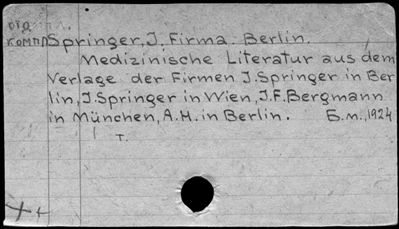 Springer, J. Firma. Berlin.
Medizinische Literatur aus dem
Verlage der Firmen J. Springer in Ber
lin, J. Springer in Wien, J.F. Bergmann
in München, A.H. in Berlin. Б.м., 1924
т.